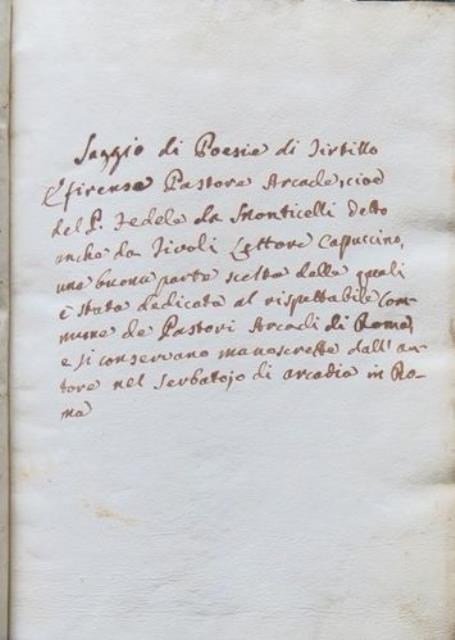 Saggio di Poesie di Tirtillo
Efirense Pastore Arcade, cioè
del P. Fedele da Monticelli detto
anche da Tivoli Lettore Cappuccino,
una buona parte scelta delle quali
è stata dedicata al rispettabile Com-
mune de Pastori Arcadi di Roma,
e si conservano manoscritte dall' au-
tore nel Serbatojo di arcadia in Ro-
ma